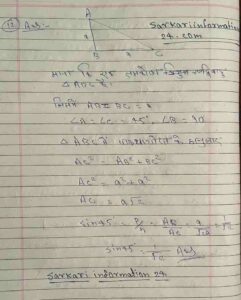 (13) Ans:
Sarkari information
24.com
A
a
B
a
C
माना कि एक समकोण त्रिभुज समद्विबाहु
△ABC है।
जिसमें AB = BC = a
∠A = ∠C = 45°, ∠B = 90
△ABC में पाइथागोरस के अनुसार
AC² = AB² + BC²
AC² = a² + a²
AC = a√2
sin45 = P/h = AB/AC = a/√2a = 1/√2
sin45° = 1/√2 Ans
Sarkari information 24.